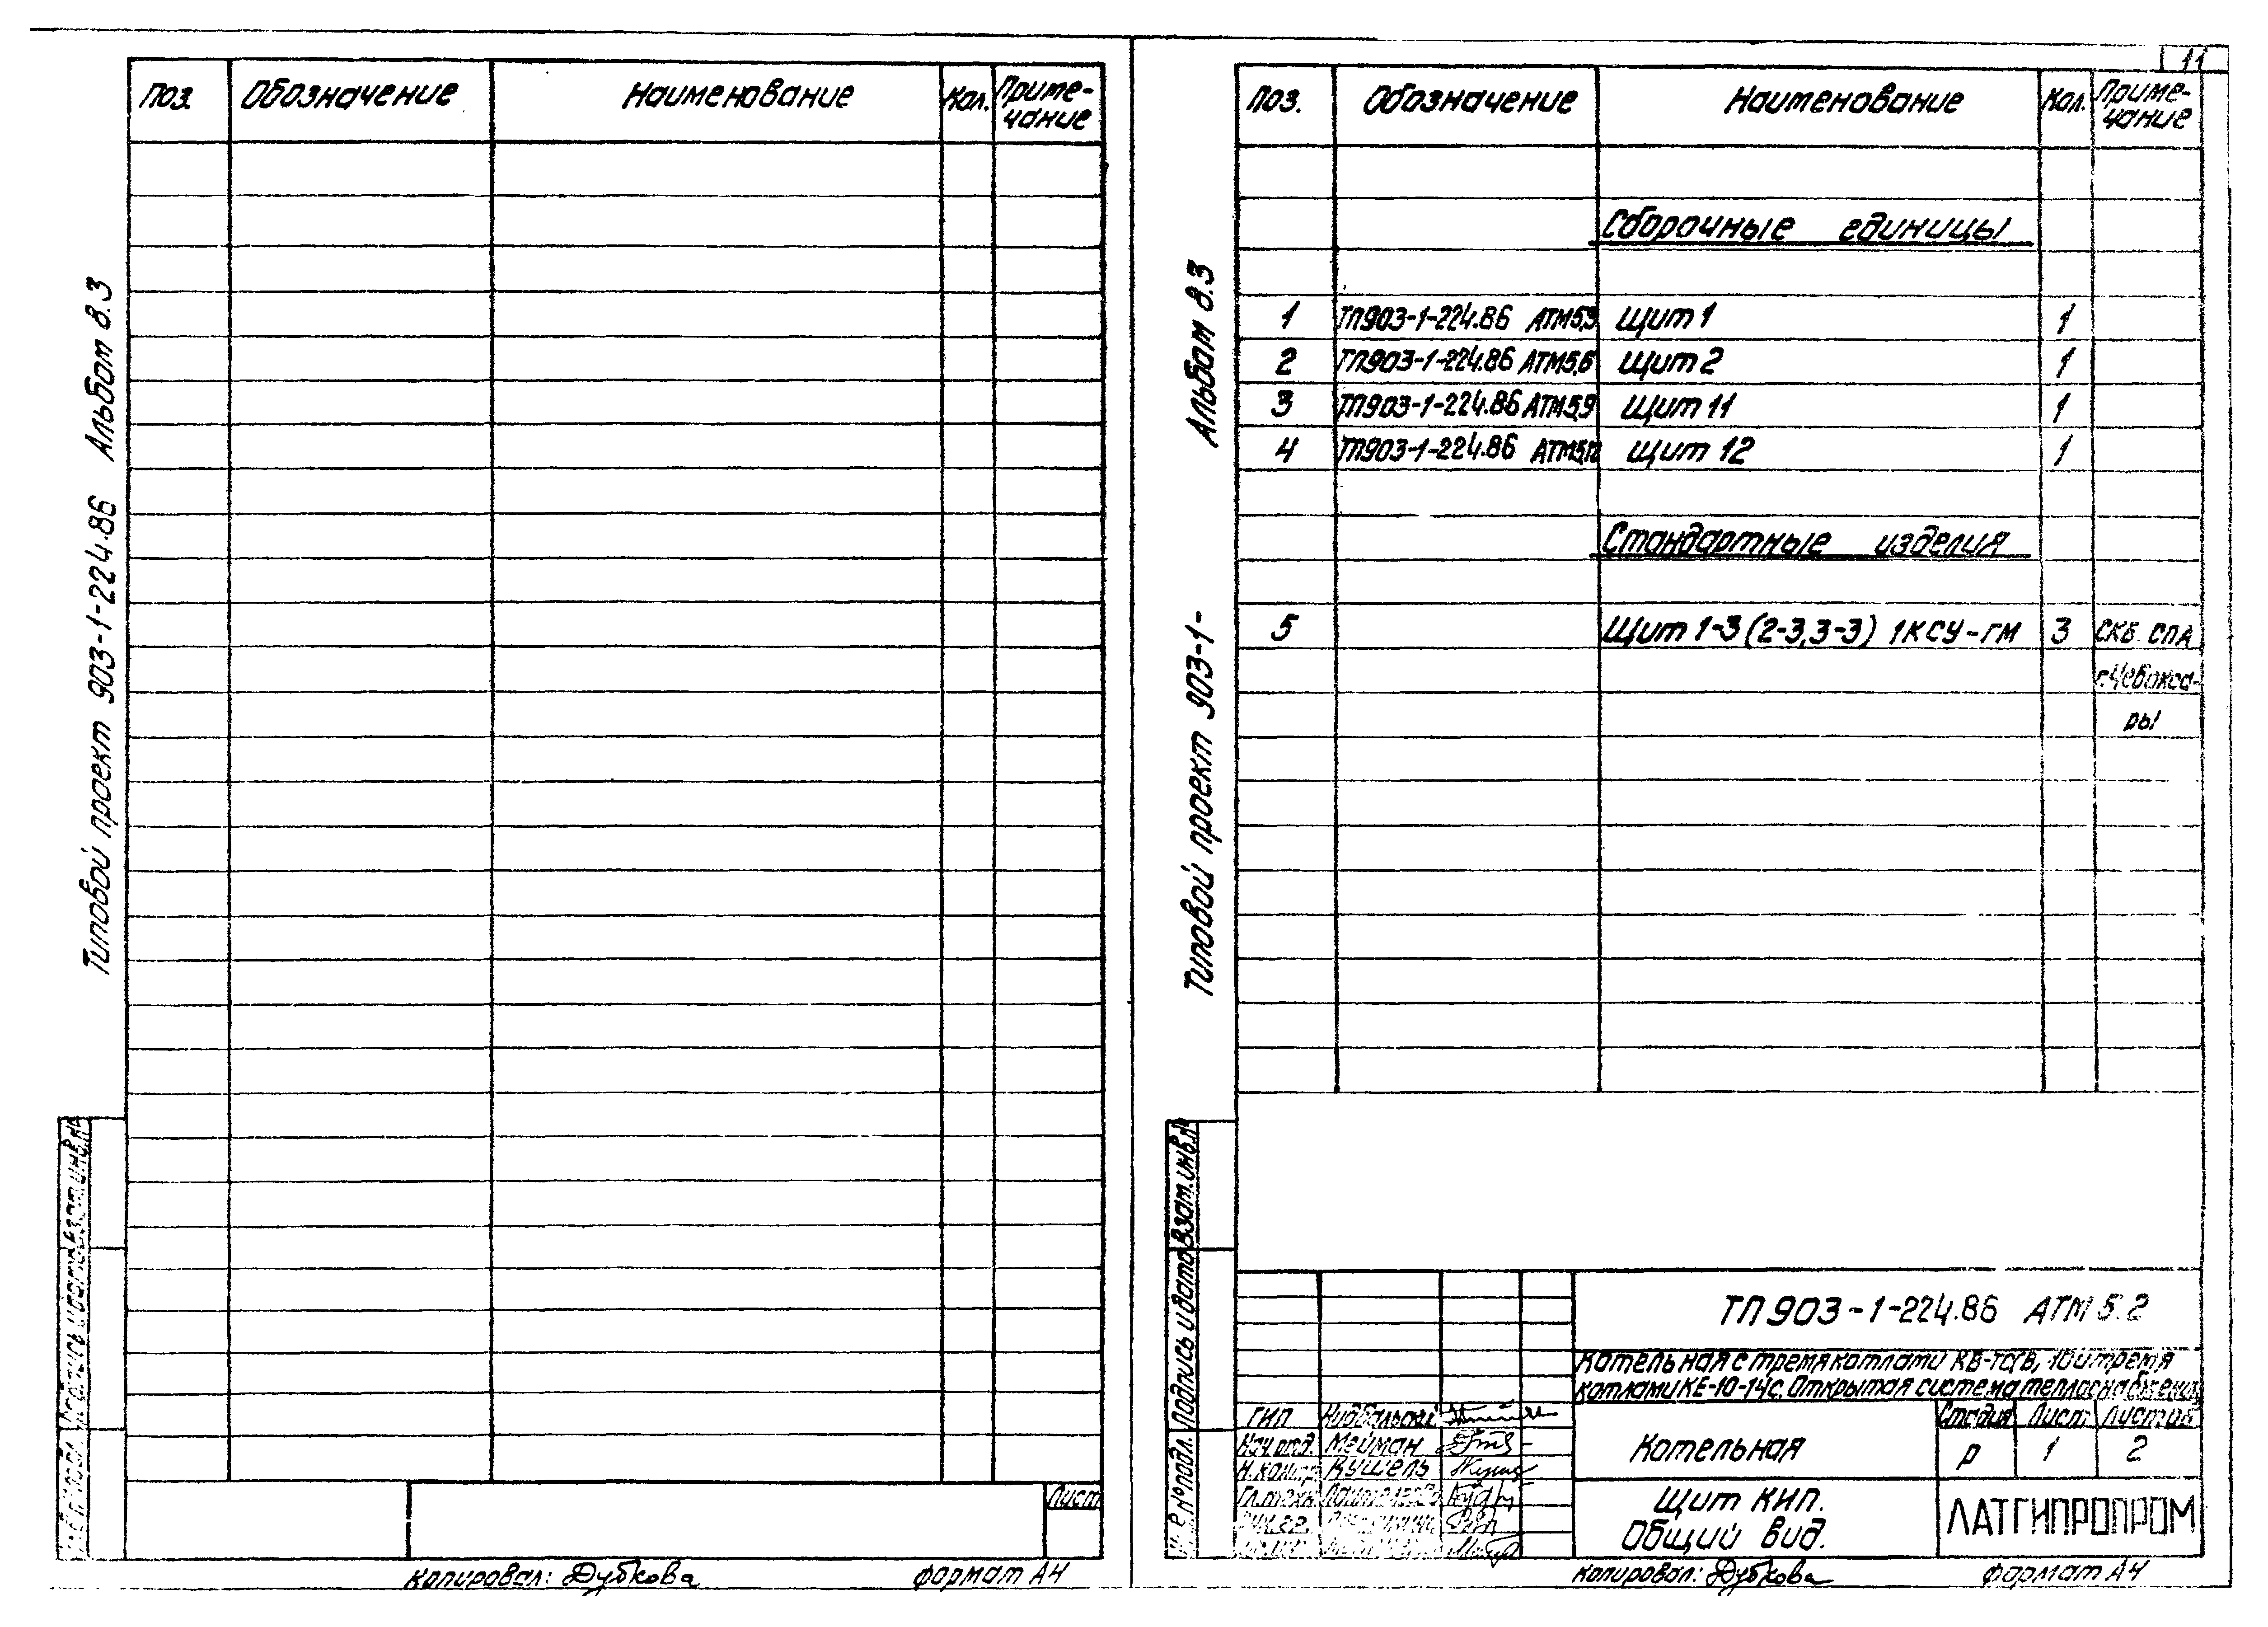 11
Поз. Обозначение Наименование Кол. Приме-
чание
Типовой проект 903-1-224.86 Альбом 8.3
Лист
Копировал: Дубкова Формат А4
Поз. Обозначение Наименование Кол. Приме-
чание
Альбом 8.3
Типовой проект 903-1-
Сборочные единицы
1 ТП903-1-224.86 АТМ5.3 Щит 1 1
2 ТП903-1-224.86 АТМ5.6 Щит 2 1
3 ТП903-1-224.86 АТМ5.9 Щит 11 1
4 ТП903-1-224.86 АТМ5.12 Щит 12 1
Стандартные изделия
5 Щит 1-3 (2-3,3-3) 1КСУ-ГМ 3 СКБ. СПА
г.Чебокса-
ры
Взам.инв.№
Подпись и дата
№ подл.
ТП 903-1-224.86 АТМ 5.2
Котельная с тремя котлами КВ-ТСВ, 10 и тремя
котлами КЕ-10-14с. Открытая система теплоснабжения
ГИП
Нач.отд. Мейман
Н.контр. Кушель
Гл.техн.
Котельная
Стадия Лист Листов
Р 1 2
Щит КИП.
Общий вид.
ЛАТГИПРОПРОМ
Копировал: Дубкова Формат А4